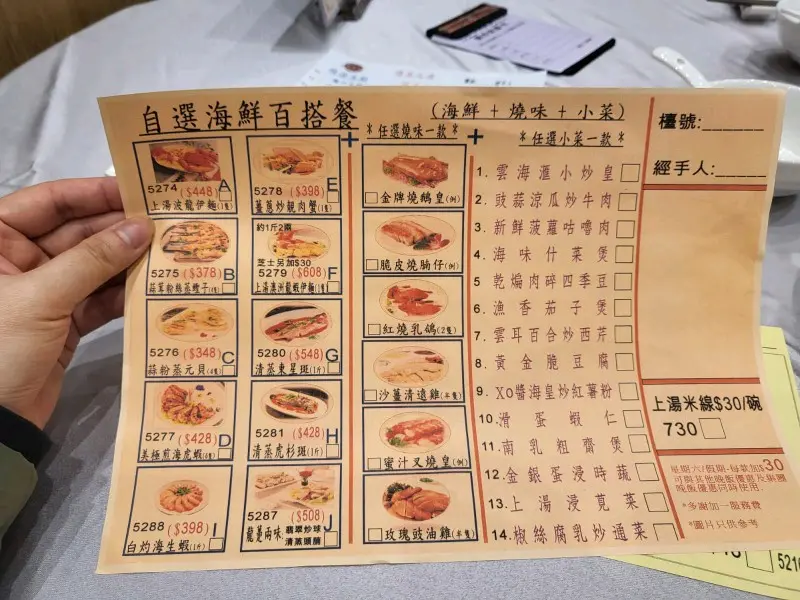 自選海鮮百搭餐
(海鮮 + 燒味 + 小菜)
5274 ($448) A
上湯波龍伊麵(1隻)
5275 ($378) B
蒜茸粉絲蒸蟶子(4隻)
5276 ($348) C
蒜粉蒸元貝(4隻)
5277 ($428) D
美極煎海虎蝦(6隻)
5288 ($398) I
白灼海生蝦(1斤)
5278 ($398) E
薑蔥炒靚肉蟹(1隻)
約1斤2兩
芝士另加$30
5279 ($608) F
上湯澳洲龍蝦伊麵(1隻)
5280 ($548) G
清蒸東星斑(1斤)
5281 ($428) H
清蒸虎杉斑(1斤)
5287 ($508) J
龍躉兩味 翡翠炒球
清蒸頭腩
+ *任選燒味一款*
金牌燒鵝皇(例)
脆皮燒腩仔(例)
紅燒乳鴿(2隻)
沙薑清遠雞(半隻)
蜜汁叉燒皇(例)
玫瑰豉油雞(半隻)
+ *任選小菜一款*
1. 雲海滙小炒皇
2. 豉蒜涼瓜炒牛肉
3. 新鮮菠蘿咕嚕肉
4. 海味什菜煲
5. 乾煸肉碎四季豆
6. 漁香茄子煲
7. 雲耳百合炒西芹
8. 黃金脆豆腐
9. XO醬海皇炒紅薯粉
10. 滑蛋蝦仁
11. 南乳粗齋煲
12. 金銀蛋浸時蔬
13. 上湯浸莧菜
14. 椒絲腐乳炒通菜
檯號:______
經手人:______
上湯米線$30/碗
730
星期六/假期-每款加$30
可與其他晚飯優惠及樂團
晚飯優惠同時使用
*多謝加一服務費
*圖片只供參考